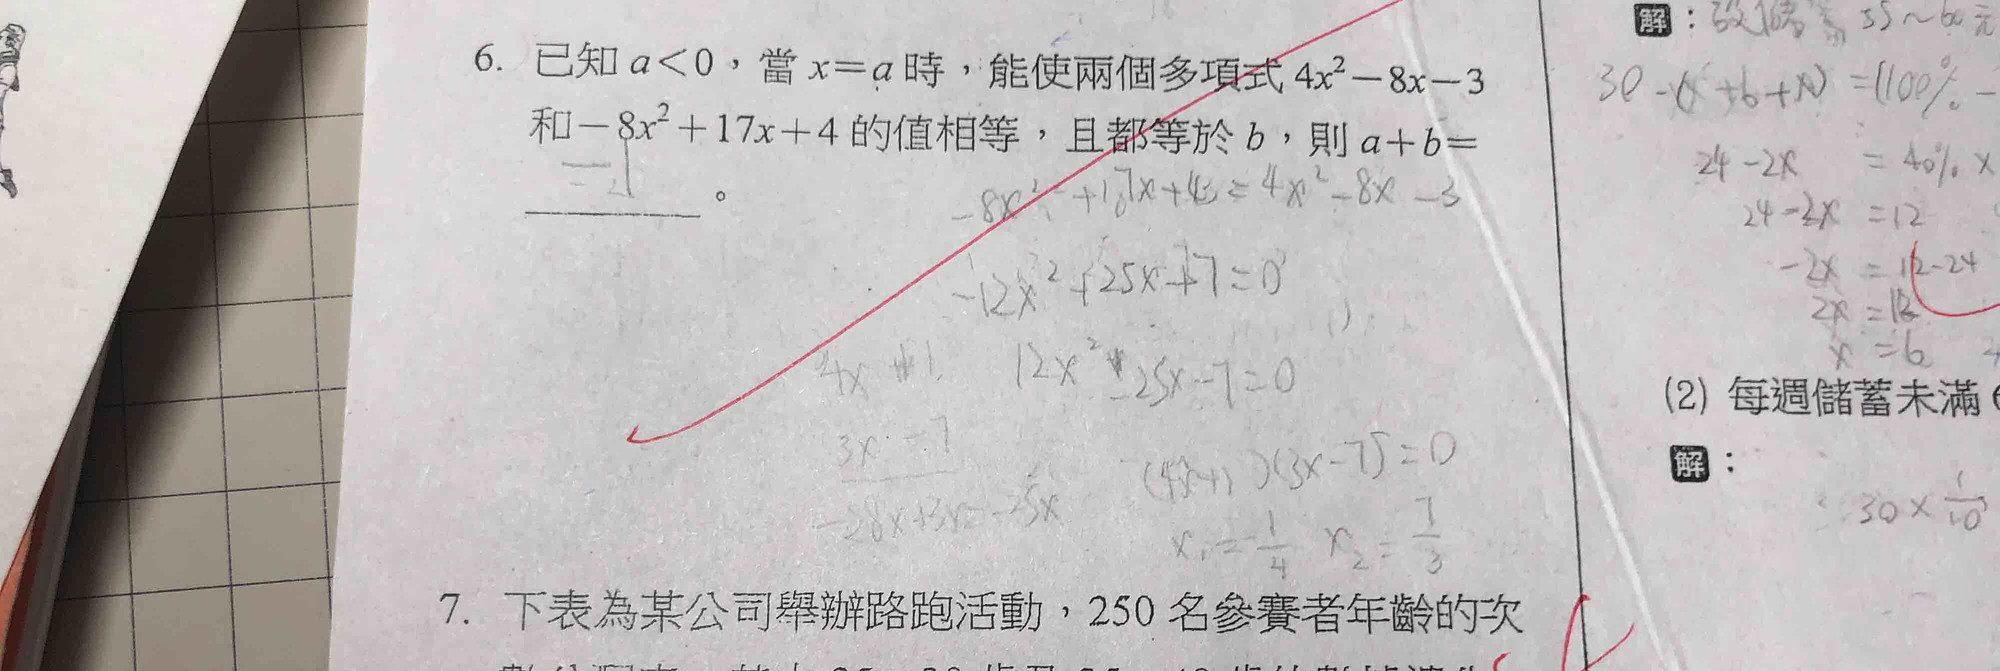 6. 已知 a<0，當 x=a 時，能使兩個多項式 4x²－8x－3
和－8x²＋17x＋4 的值相等，且都等於 b，則 a＋b＝
。
-8x²+17x+4=4x²-8x-3
-12x²+25x+7=0
4x 1
12x²-25x-7=0
3x -7
(4x+1)(3x-7)=0
-28x+3x=-25x
x₁=-1/4 x₂=7/3
7. 下表為某公司舉辦路跑活動，250 名參賽者年齡的次
解：設儲蓄 55~60元
=(100%-
24-2x =40%x
24-2x =12
-2x =12-24
2x =12
x =6
(2) 每週儲蓄未滿 6
解：
30×1/10